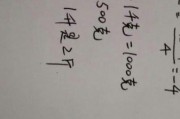 4 = -4
1千克=1000克
500克
是2斤